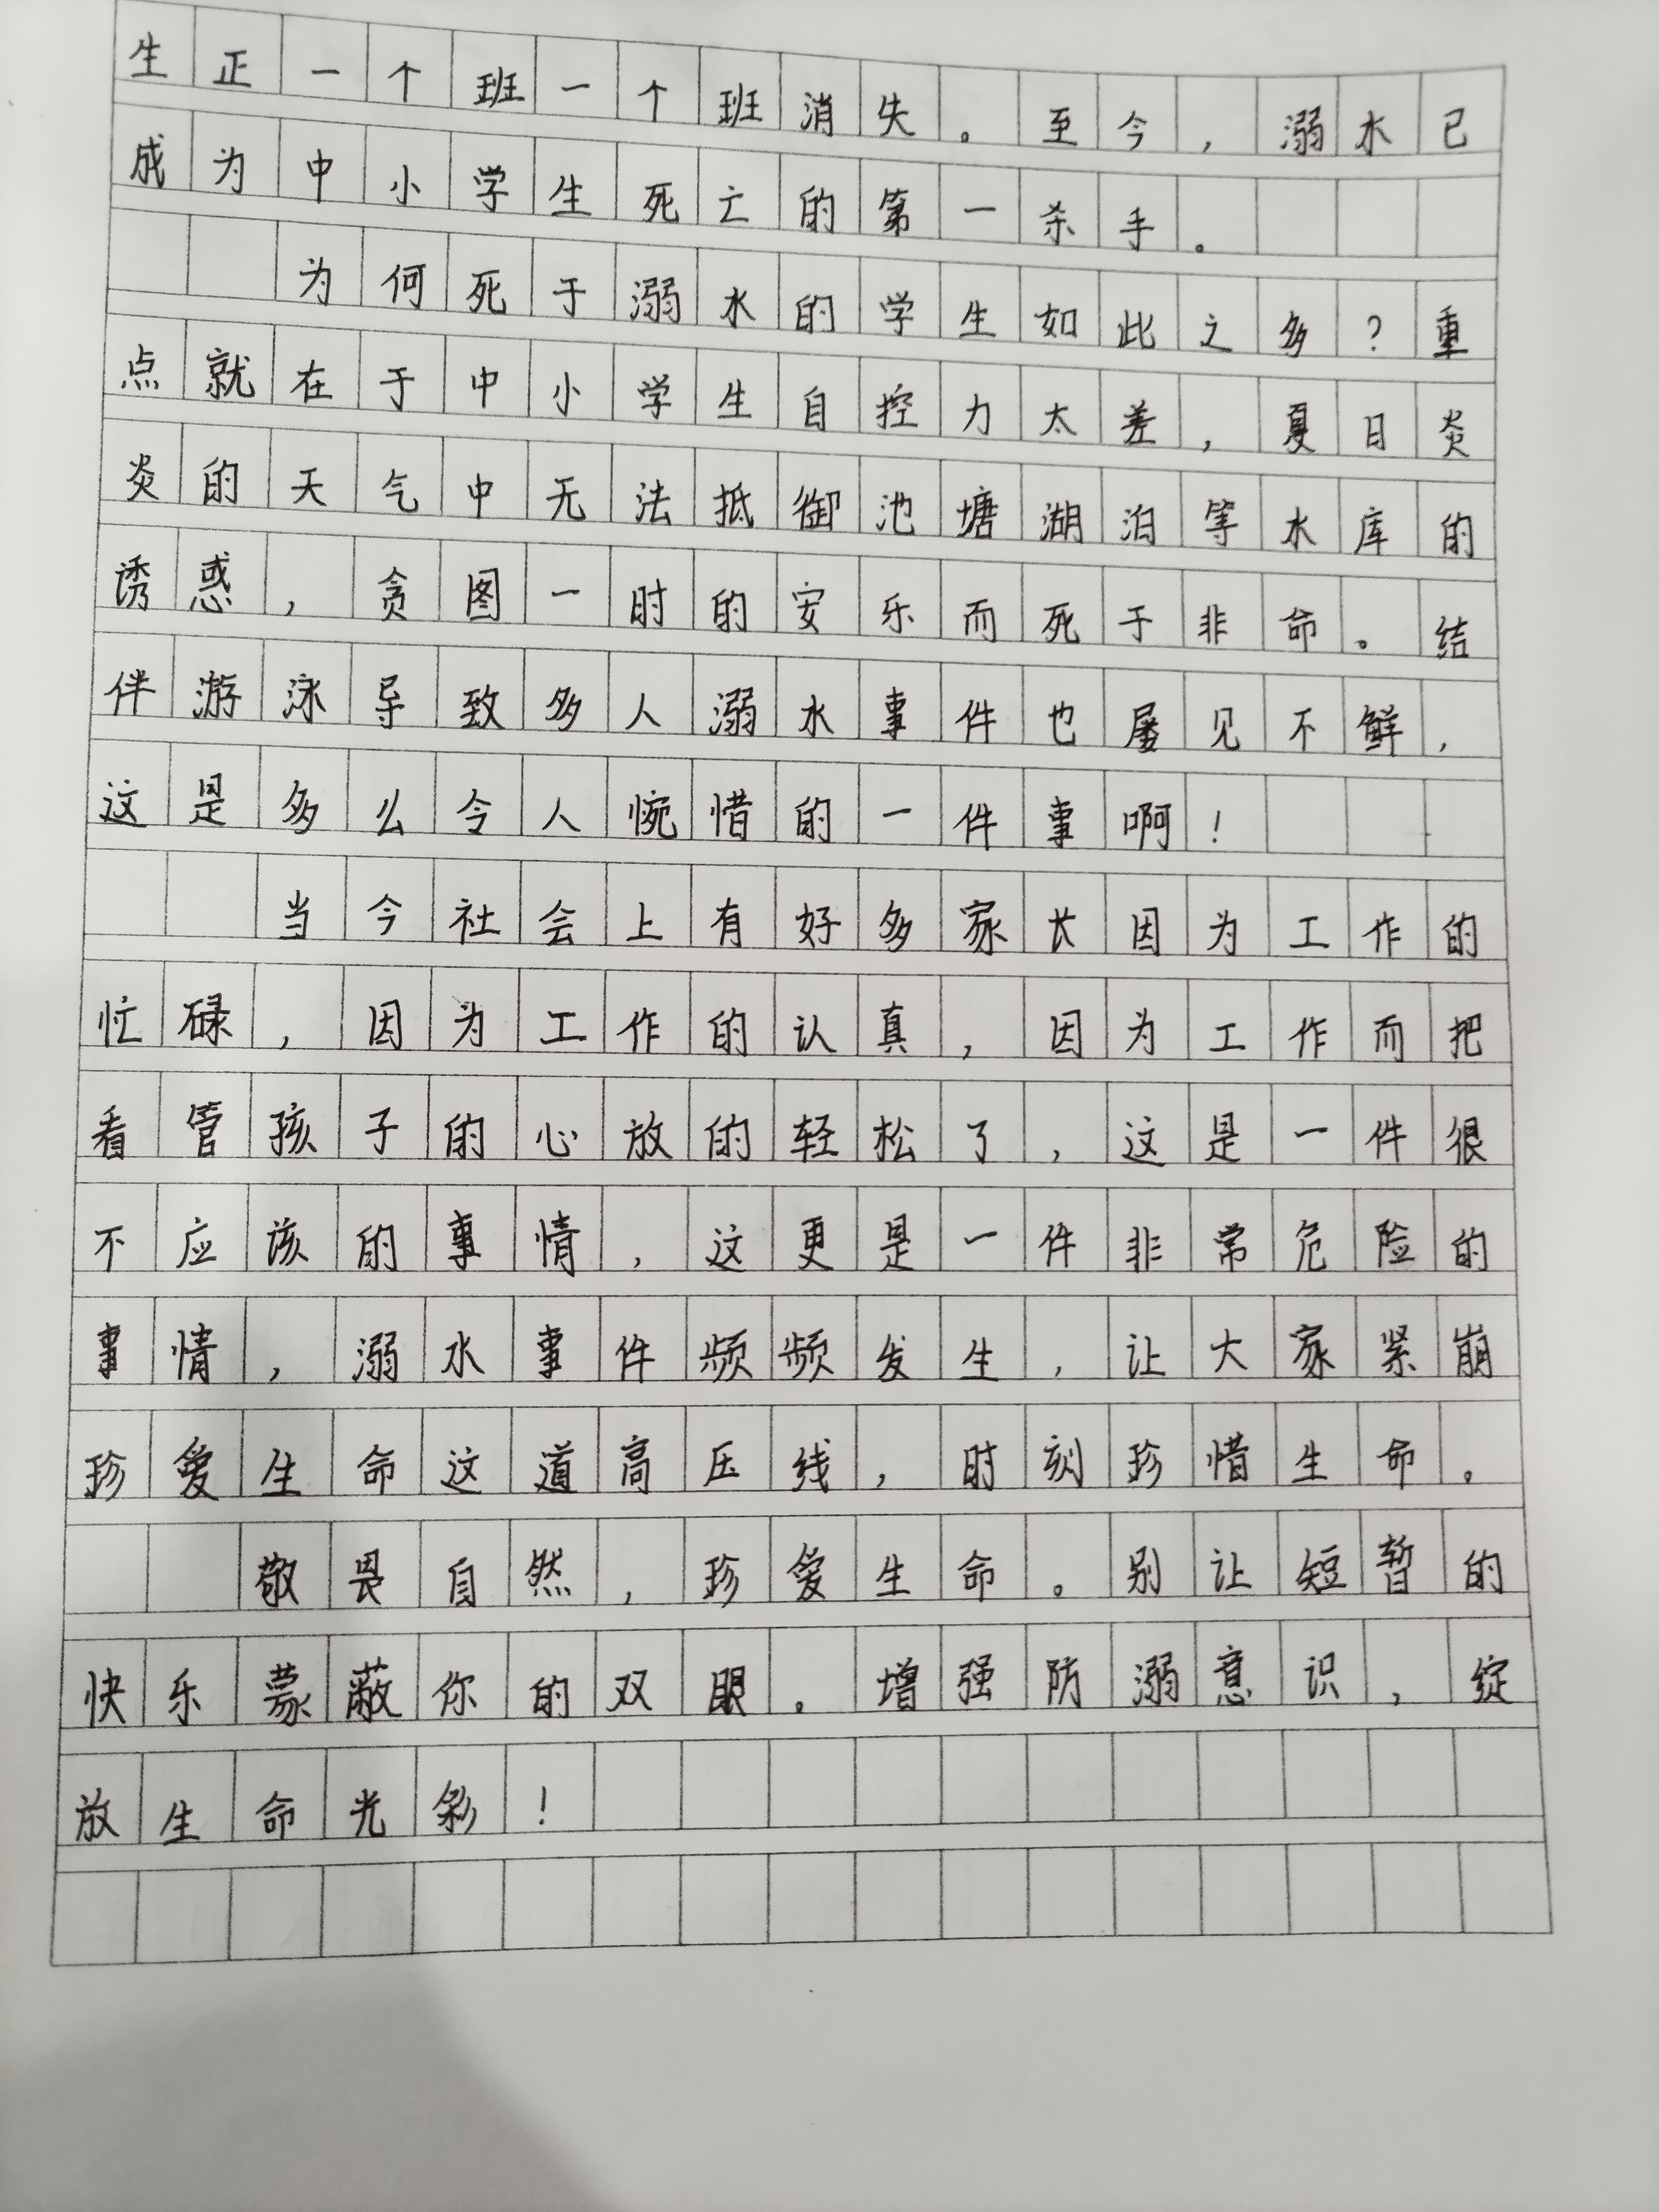 生正一个班一个班消失。至今，溺水已
成为中小学生死亡的第一杀手。
为何死于溺水的学生如此之多？重
点就在于中小学生自控力太差，夏日炎
炎的天气中无法抵御池塘湖泊等水库的
诱惑，贪图一时的安乐而死于非命。结
伴游泳导致多人溺水事件也屡见不鲜，
这是多么令人惋惜的一件事啊！
当今社会上有好多家长因为工作的
忙碌，因为工作的认真，因为工作而把
看管孩子的心放的轻松了，这是一件很
不应该的事情，这更是一件非常危险的
事情，溺水事件频频发生，让大家紧崩
珍爱生命这道高压线，时刻珍惜生命。
敬畏自然，珍爱生命。别让短暂的
快乐蒙蔽你的双眼。增强防溺意识，绽
放生命光彩！